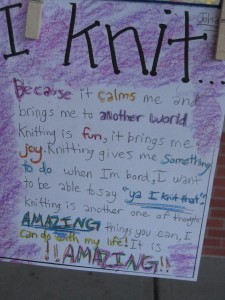 I knit...
Because it calms me and
brings me to another world
Knitting is fun, it brings me
joy. Knitting gives me something
to do when Im bord, I want
to be able to say "ya I knit that"!
Knitting is another one of those
AMAZING things you can, I
can do with my life! It is
!!AMAZING!!